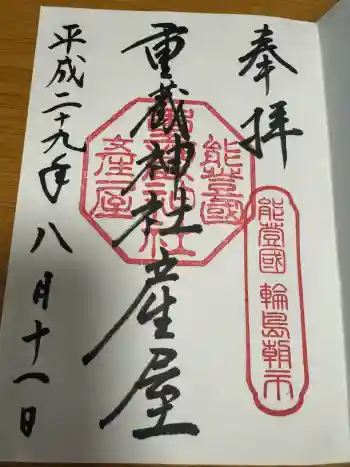 奉拝
能登國 輪島朝市
重蔵神社産屋
能登國
重蔵神社
産屋
平成二十九年八月十一日